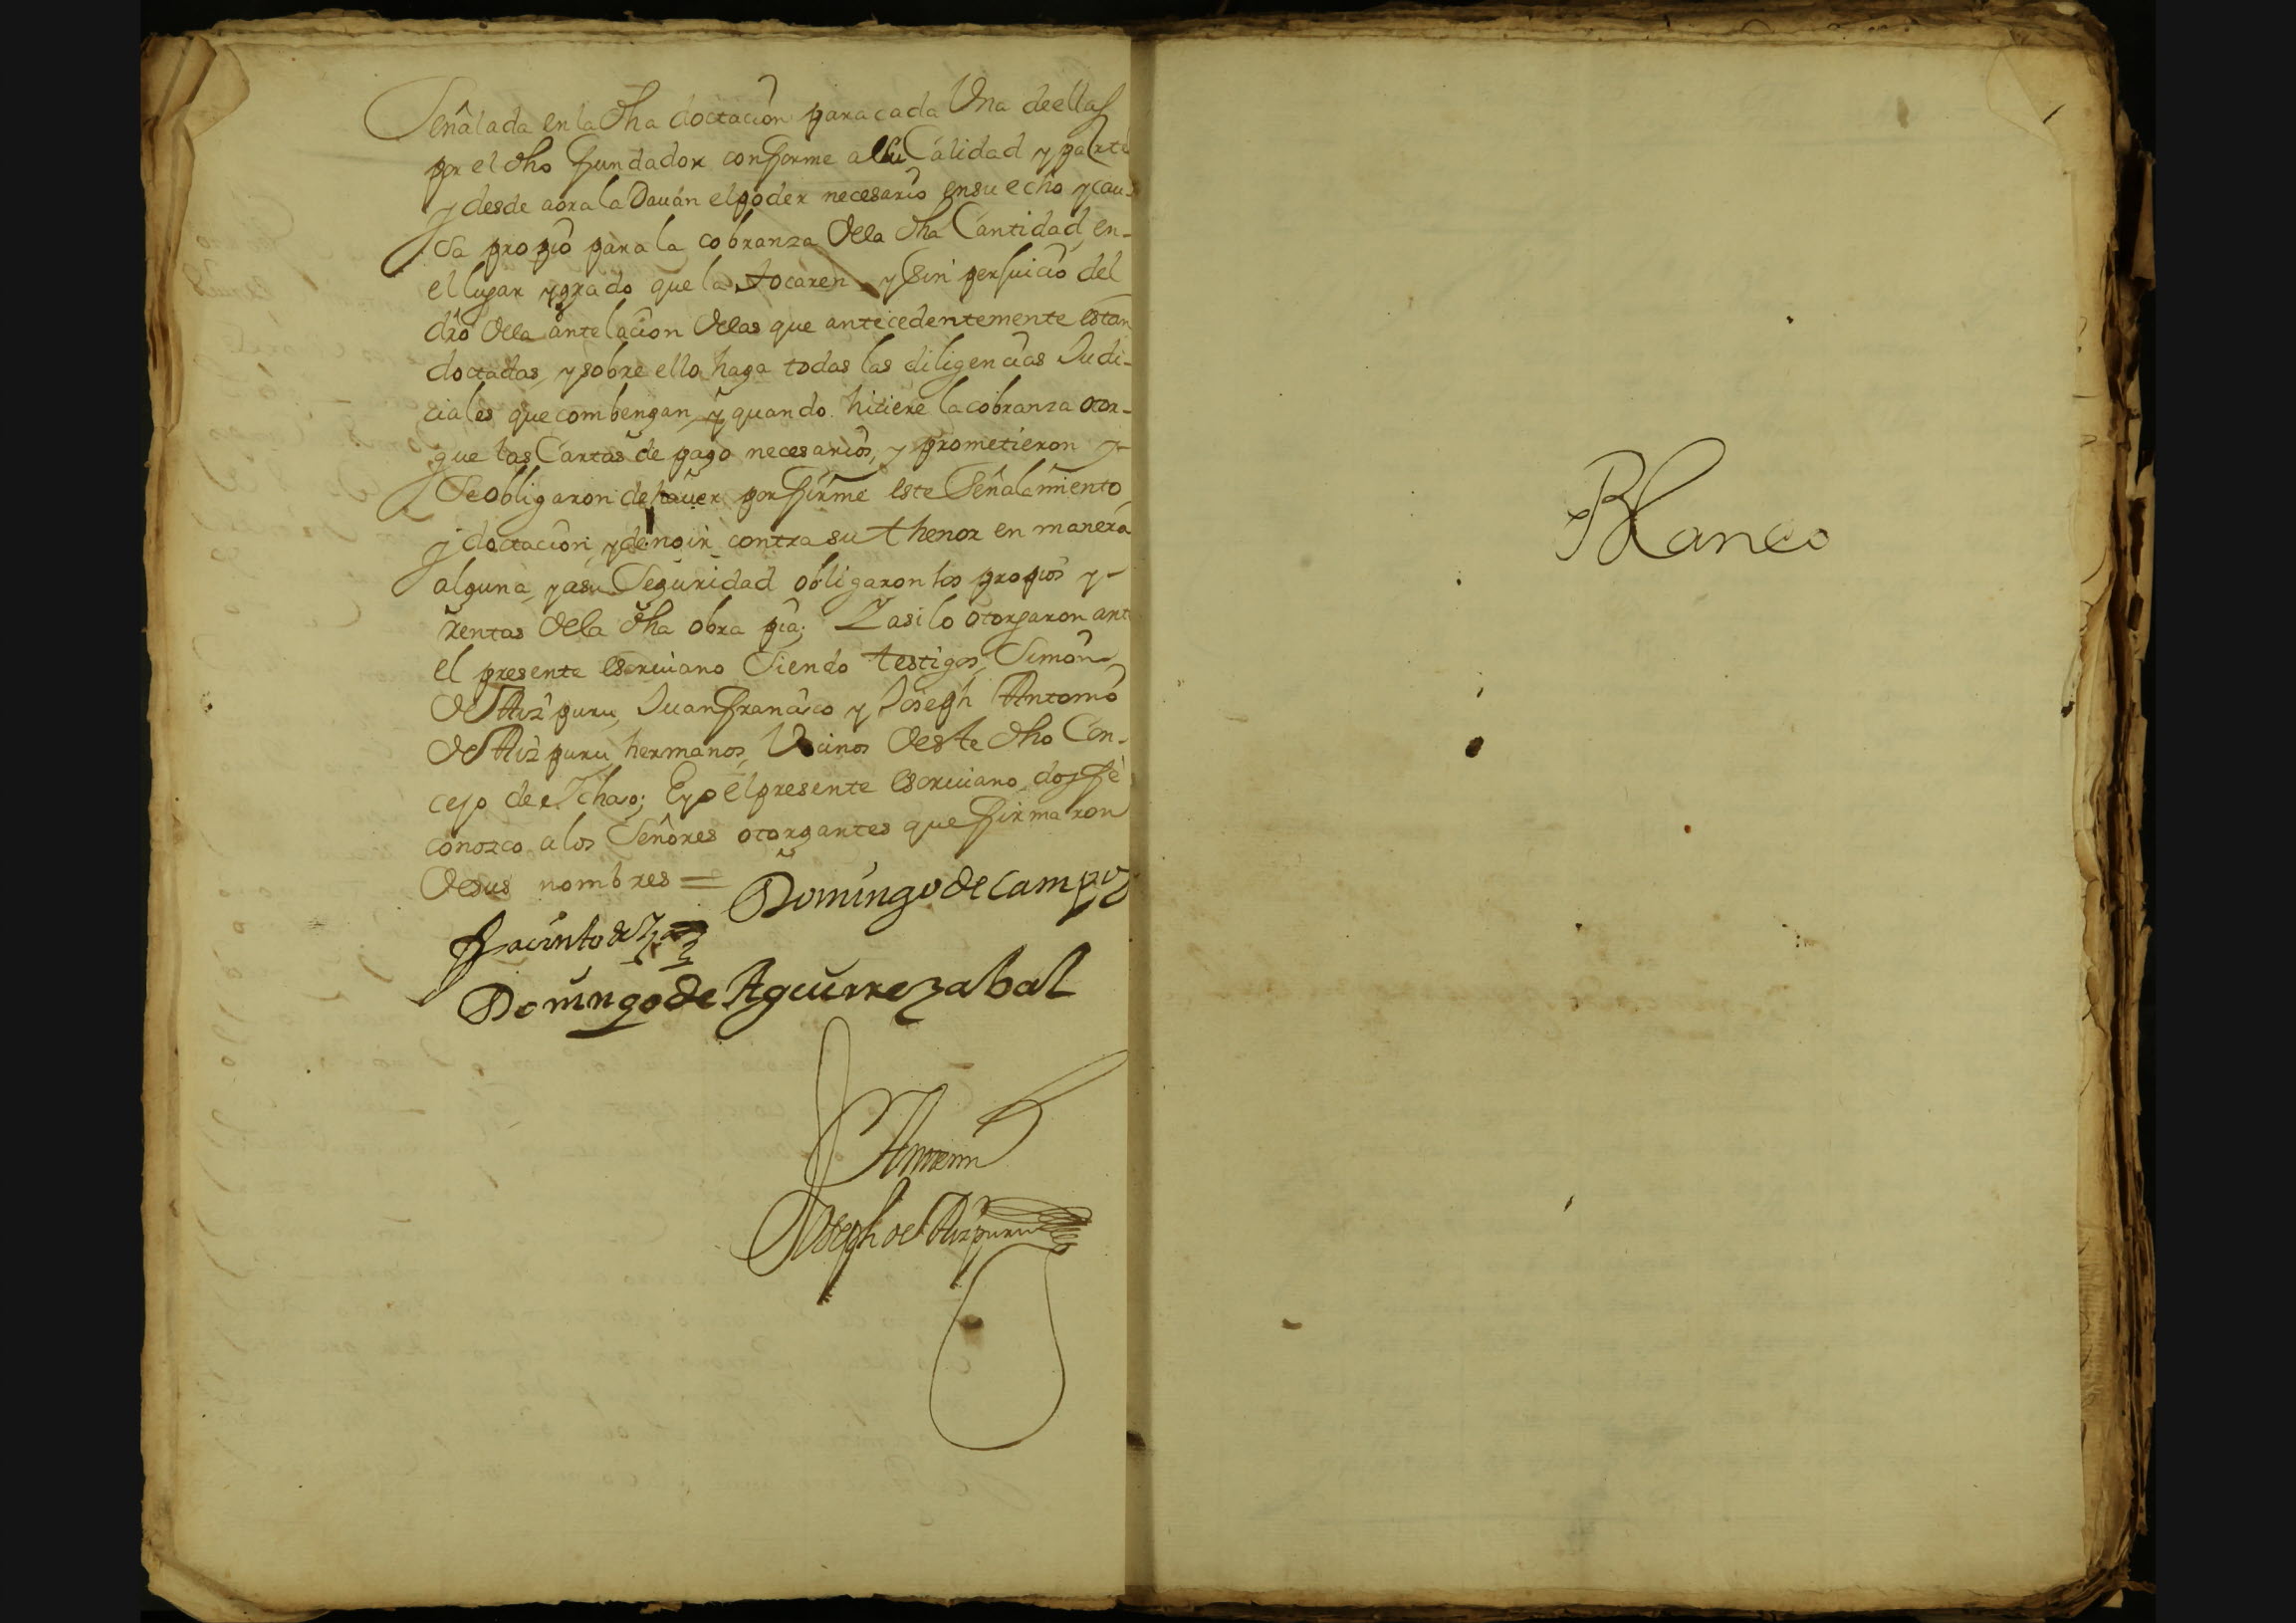 Señalada en la dha doctacion para cada Una de ellas
por el dho fundador conforme a su Calidad y parte
y desde aora la Dauan el poder necesario en su echo y cau-
sa propio para la cobranza della dha Cantidad en-
el lugar y grado que la tocaren y sin perjuicio del
dro della antelacion dellas que antecedentemente estan
doctadas, y sobre ello haga todas las diligencias Judi-
ciales que combengan y quando hiciere la cobranza otor-
gue las Cartas de pago necesarios, y prometieron y-
Se obligaron de hauer por firme este Señalamiento
y doctacion y de no ir contra su thenor en manera
alguna, y a su Seguridad obligaron los propios y-
rentas dela dha obra pia; Y asi lo otorgaron ante
el presente escriuano Siendo testigos, Simon
de Aizpuru, Juan francisco y Joseph Antonio
de Aizpuru hermanos, Vecinos deste dho Con-
cejo de Ichaso; E yo el presente escriuano doy fe
conozco a los Señores otorgantes que firmaron
de sus nombres =
Domingo de Campos
Jacinto de
Domingo de Aguirrezabal
Ante mi
Joseph de Aizpuru
Blanco